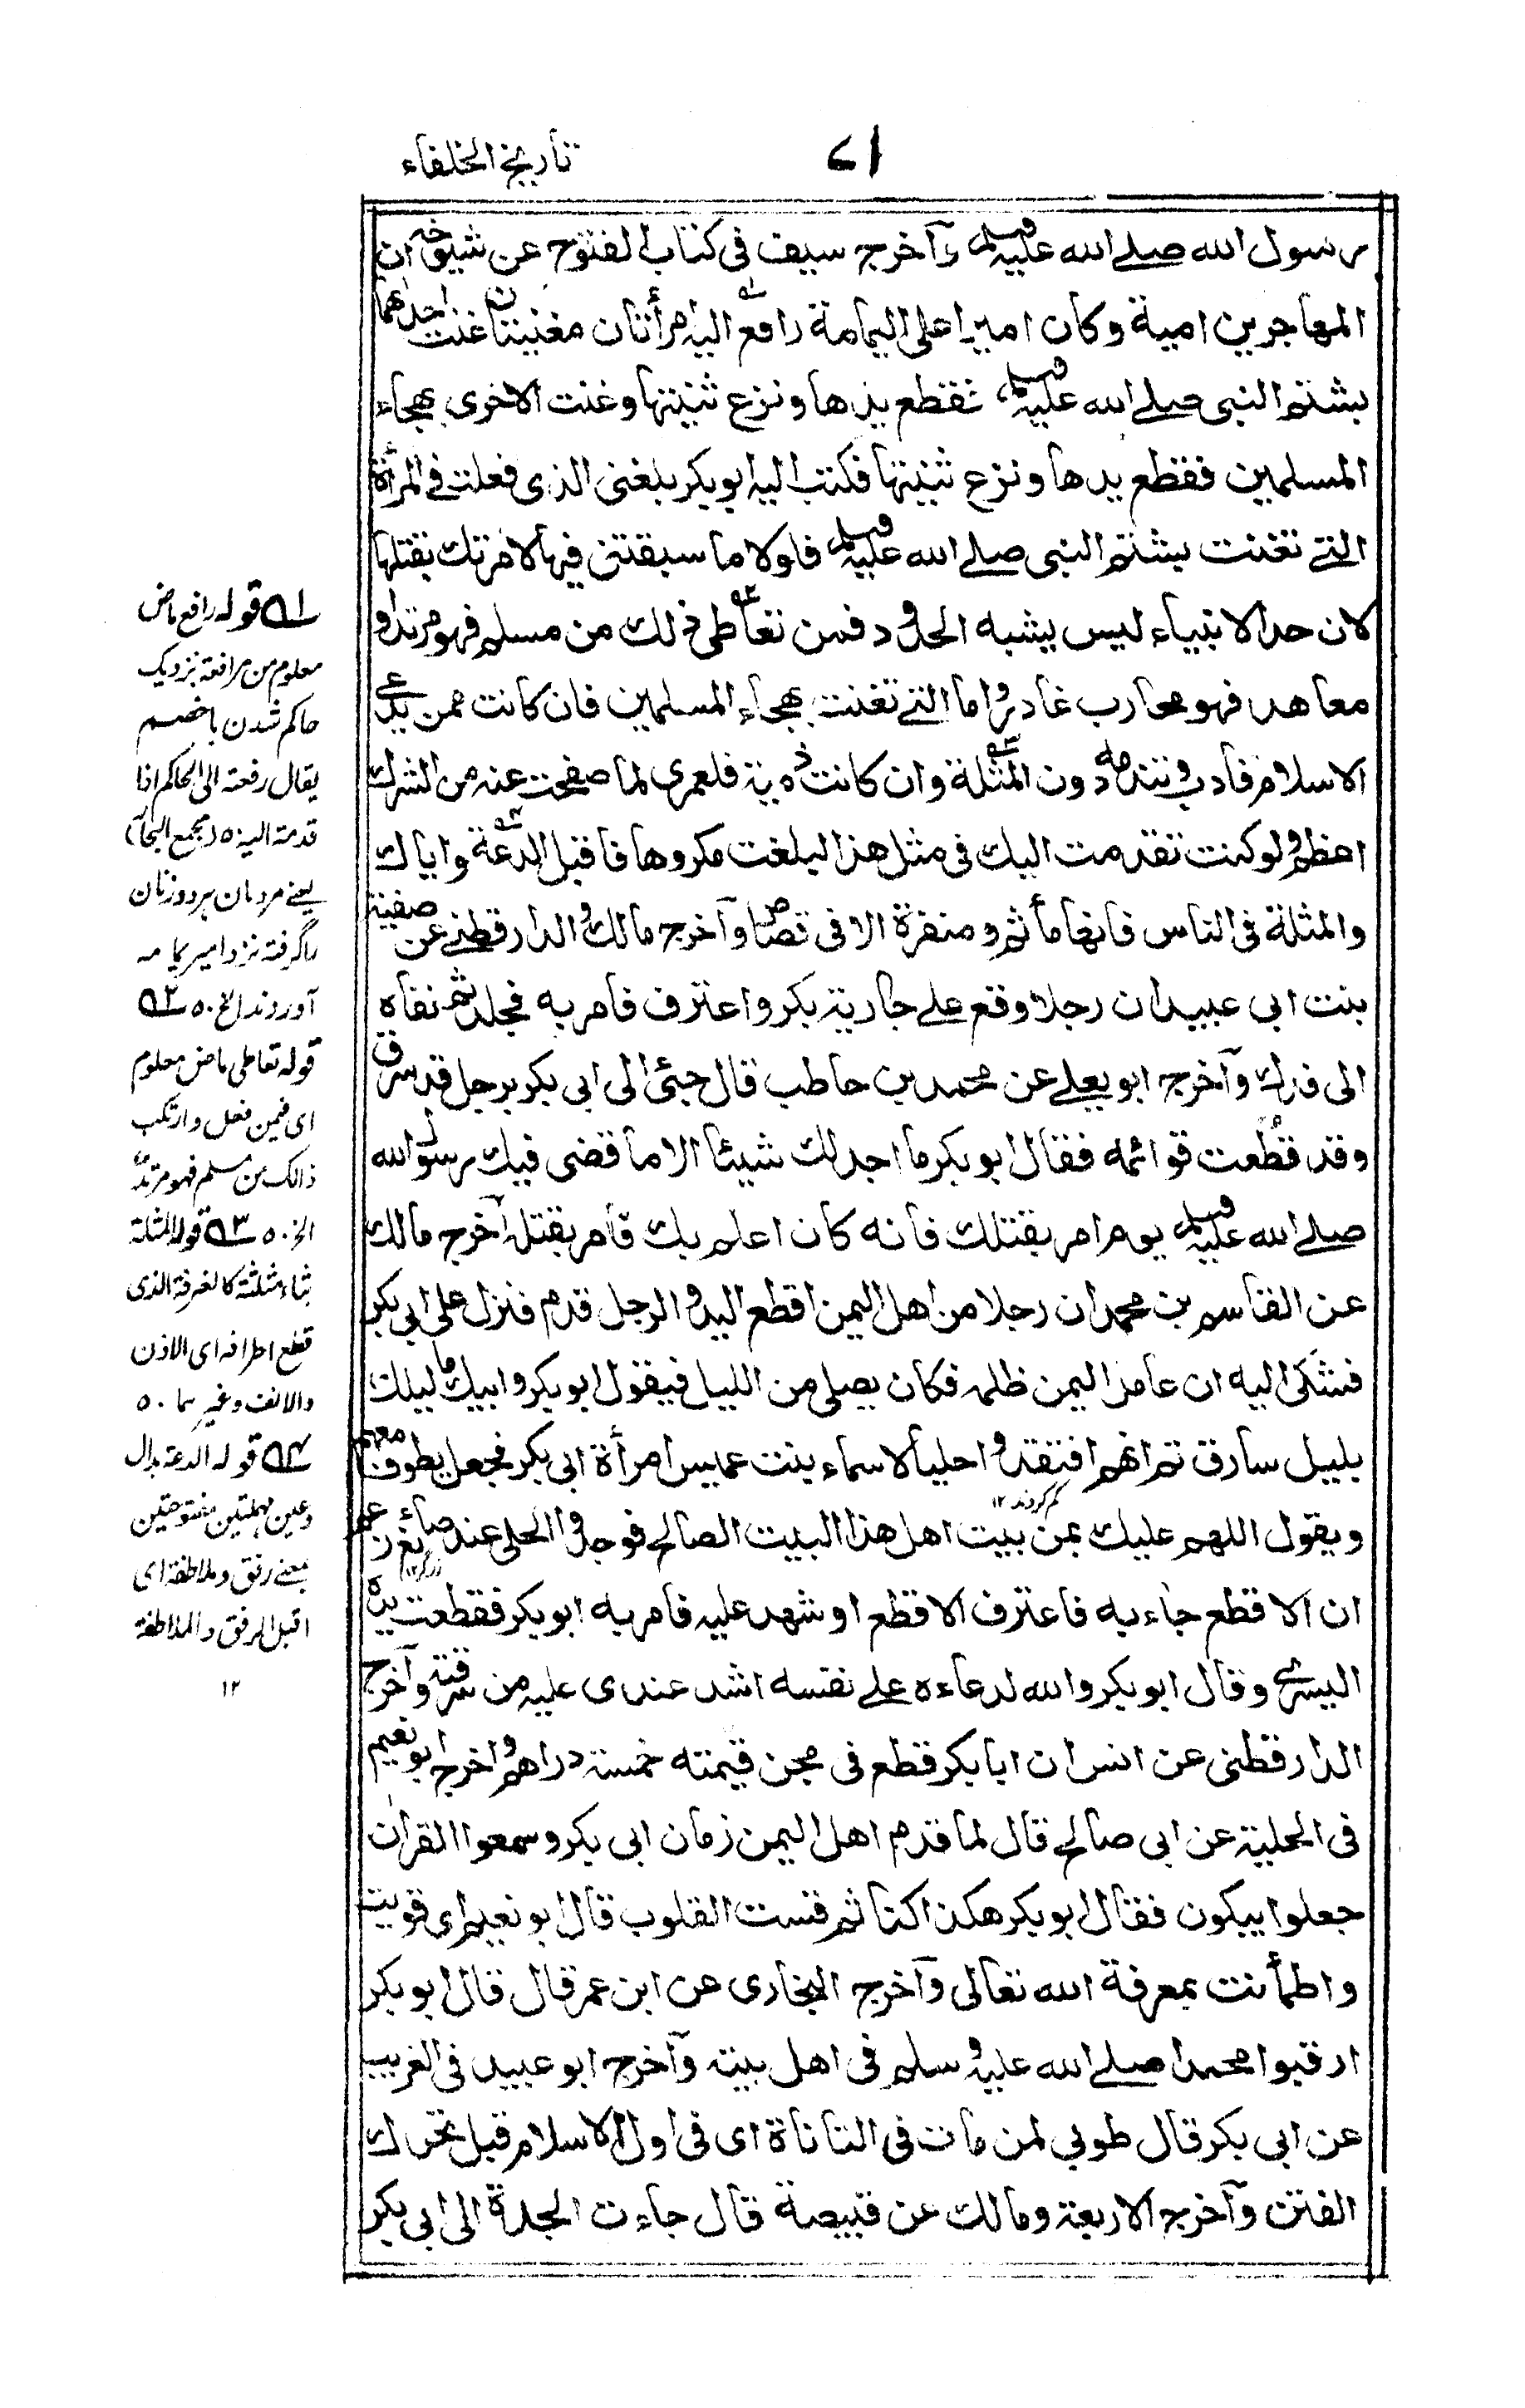 ٧١
تاريخ الخلفاء
رسول الله صلے الله عليه وسلم وآخرج سيف فى كتاب الفتوح عن شيوخه ان
المهاجر بن امية وكان اميرا على اليمامة رافع اليه امرأتان مغنيتان غنت احداهما
بشتم النبى صلے الله عليه وسلم فقطع يدها ونزع ثنيتها وغنت الاخرى بهجاء
المسلمين فقطع يدها ونزع ثنيتها فكتب اليه ابو بكر بلغنى الذى فعلت فے المرأة
التے تغنت بشتم النبى صلے الله عليه وسلم فلولا ما سبقتنى فيها لامرتك بقتلها
لان حد الانبياء ليس يشبه الحدود فمن تعاطى ذلك من مسلم فهو مرتد او
معاهد فهو محارب غادر واما التے تغنت بهجاء المسلمين فان كانت ممن يدعے
الاسلام فادب وتقدمه دون المثلة وان كانت ذمية فلعمرى لما صفحت عنه من الشرك
اعظم ولو كنت تقدمت اليك فى مثل هذا لبلغت مكروها فاقبل الدعة واياك
والمثلة فى الناس فانها مأثم ومنفرة الا فى قصاص وآخرج مالك والدارقطنے عن صفية
بنت ابى عبيد ان رجلا وقع علے جارية بكر واعترف فامر به فجلد ثم نفاه
الى فدك وآخرج ابو يعلے عن محمد بن حاطب قال جئ الى ابى بكر برجل قد سرق
وقد قطعت قوائمه فقال ابو بكر ما اجد لك شيئا الا ما قضى فيك رسول الله
صلے الله عليه وسلم يوم امر بقتلك فانه كان اعلم بك فامر بقتله آخرج مالك
عن القاسم بن محمد ان رجلا من اهل اليمن اقطع اليد والرجل قدم فنزل على ابى بكر
فشكى اليه ان عامل اليمن ظلمه فكان يصلى من الليل فيقول ابو بكر وابيك ما ليلك
بليل سارق ثم انهم افتقدوا حليا لاسماء بنت عميس امرأة ابى بكر فجعل يطوف معهم
كم كردند ١٢
ويقول اللهم عليك بمن بيت اهل هذا البيت الصالح فوجدوا الحلى عند صائغ زعم
زرگر ١٢
ان الاقطع جاء به فاعترف الاقطع او شهد عليه فامر به ابو بكر فقطعت يده
اليسرے وقال ابو بكر والله لدعاءه علے نفسه اشد عندى عليه من سرقته وآخرج
الدارقطنى عن انس ان ابا بكر قطع فى مجن قيمته خمسة دراهم واخرج ابو نعيم
فى الحلية عن ابى صالح قال لما قدم اهل اليمن زمان ابى بكر وسمعوا القران
جعلوا يبكون فقال ابو بكر هكذا كنا ثم قست القلوب قال ابو نعيم اى قويت
واطمأنت بمعرفة الله تعالى وآخرج البخارى عن ابن عمر قال قال ابو بكر
ارقبوا محمدا صلے الله عليه وسلم فى اهل بيته وآخرج ابو عبيد فى الغريب
عن ابى بكر قال طوبى لمن مات فى النانأة اى فى اول الاسلام قبل تحرك
الفتن وآخرج الاربعة ومالك عن قبيصة قال جاءت الجدة الى ابى بكر
١ قوله رافع ماض
معلوم من مرافعة نزديک
حاكم شدن با خصم
يقال رفعته الى الحاكم اذا
قدمته اليه ٥٠ (مجمع البحار)
يعنے مردمان هر دو زنان
را گرفته نزد امير يمامه
آوردند الخ ٥٠ ٢
قوله تعاطى ماض معلوم
اى فمن فعل وارتكب
ذالک من مسلم فهو مرتد
الخ ٥٠ ٣ قوله المثلة
بثاء مثلثة كالغرفة الذى
قطع اطرافه اى الاذن
والانف وغيرهما ٥٠
٤ قوله الدعة بدال
وعين مهملتين مفتوحتين
بمعنے رفق وملاطفة اى
اقبل الرفق والملاطفة
١٢